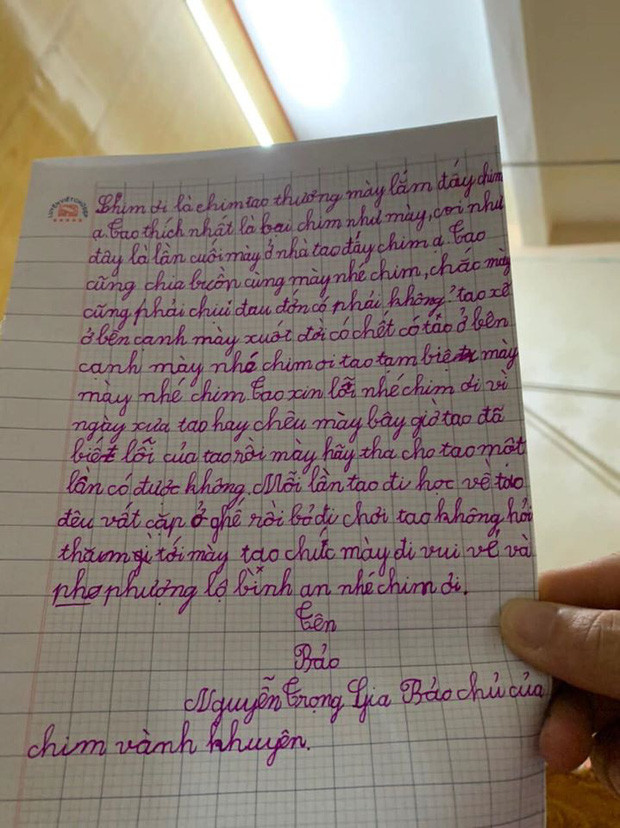 Chim ơi là chim tao thương mày lắm đấy chim
ạ. Tao thích nhất là bai chim như mày, coi như
đây là lần cuối mày ở nhà tao đấy chim ạ. Tao
cũng chia buồn cùng mày nhé chim, chắc mày
cũng phải chiụ đau đớn có phải không? tao xẽ
ở bên cạnh mày xuốt đời có chết có tao ở bên
cạnh mày nhé chim ơi tao tạm biệt mày
mày nhé chim. Tao xin lỗi nhé chim ơi vì
ngày xưa tao hay chêu mày bây giờ tao đã
biết lỗi của tao rồi mày hãy tha cho tao một
lần có được không. Mỗi lần tao đi học về tao
đêu vất cặp ở ghê rồi bỏ đi chơi tao không hỏi
thăm gì tới mày tao chức mày đi vui vẻ và
pho phượng lộ bình an nhé chim ơi.
Tên
Bảo
Nguyễn Trọng Gia Bảo chủ của
chim vành khuyên.